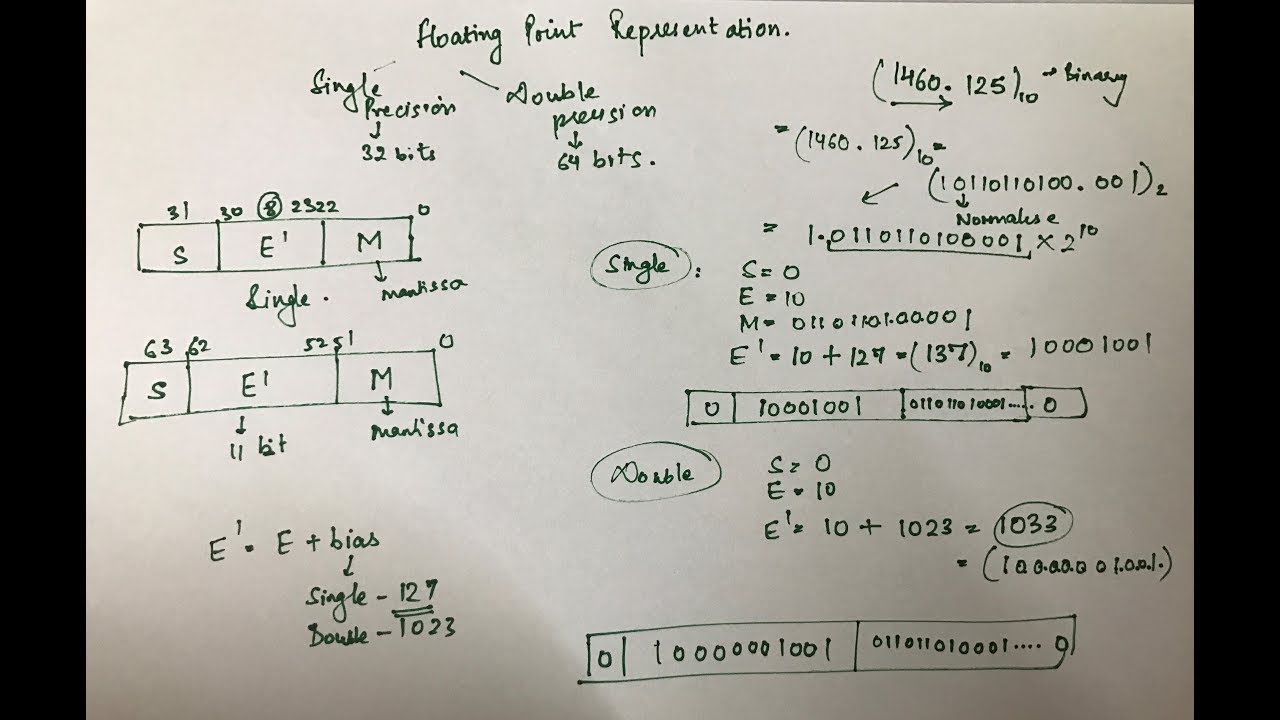 Floating Point Representation.
Single Precision
32 bits
Double precision
64 bits.
31 30 8 23 22 0
S E' M
mantissa
Single.
63 62 52 51 0
S E' M
11 bit
mantissa
E' = E + bias
Single - 127
Double - 1023
(1460. 125)10 → Binary
= (1460. 125)10 =
(10110110100. 001)2
Normalise
= 1.0110110100001 × 2^10
Single :
S = 0
E = 10
M = 0110110100001
E' = 10 + 127 = (137)10 = 10001001
0 10001001 011011010001..... 0
Double
S = 0
E = 10
E' = 10 + 1023 = 1033
= (10000001001)
0 10000001001 011011010001.... 0